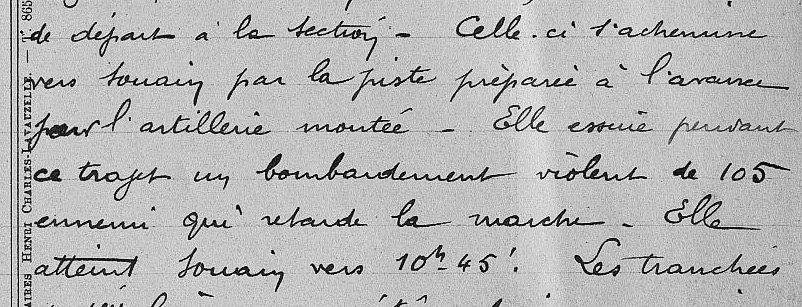 de départ à la section - Celle-ci s'achemine
vers Souain par la piste préparée à l'avance
pour l'artillerie montée - Elle essuie pendant
ce trajet un bombardement violent de 105
ennemi qui retarde la marche. Elle
atteint Souain vers 10h-45'. Les tranchées
AIRES HENRI CHARLES-LAVAUZELLE. — T. 865